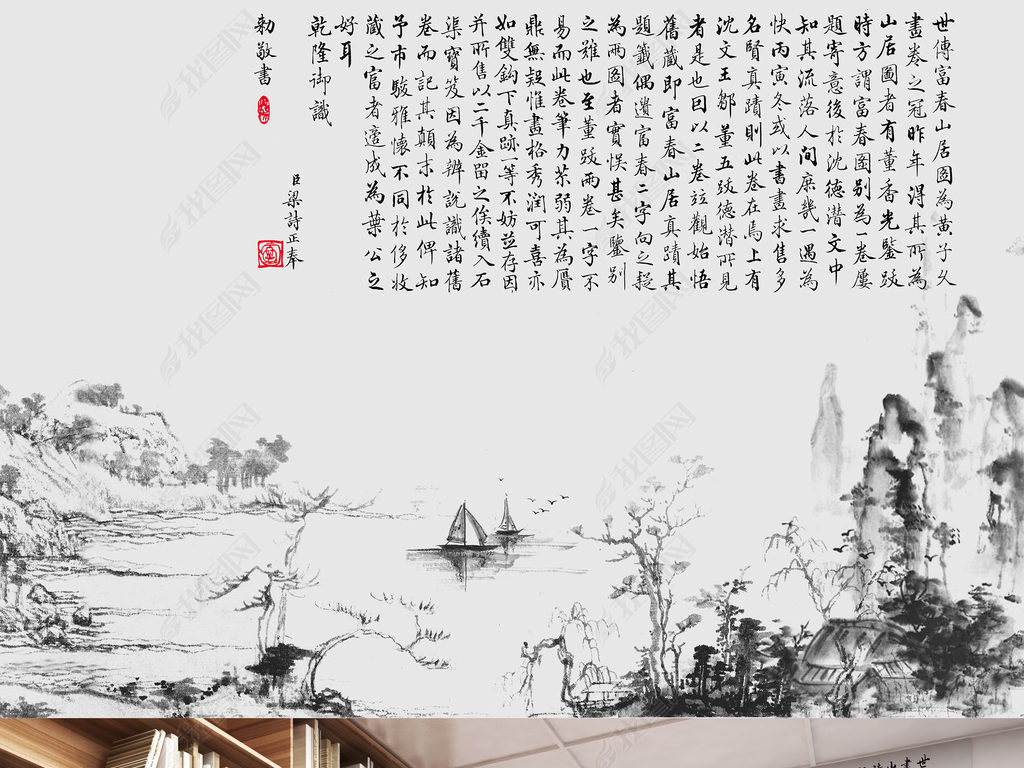 世傳富春山居圖為黃子久
畫卷之冠昨年得其所為
山居圖者有董香光鑒跋
時方謂富春圖別為一卷屢
題寄意後於沈德潛文中
知其流落人間庶幾一遇為
快丙寅冬或以書畫求售多
名賢真蹟則此卷在焉上有
沈文王鄒董五跋德潛所見
者是也因以二卷並觀始悟
舊藏即富春山居真蹟其
題籤偶遺富春二字向之疑
為兩圖者實悞甚矣鑒別
之難也至董跋兩卷一字不
易而此卷筆力苶弱其為贗
鼎無疑惟畫格秀潤可喜亦
如雙鈎下真跡一等不妨並存因
并所售以二千金留之俟續入石
渠寶笈因為辨說識諸舊
卷而記其顛末於此俾知
予市駿雅懷不同於侈收
藏之富者適成為葉公之
好耳
乾隆御識
臣梁詩正奉
勅敬書
我图网